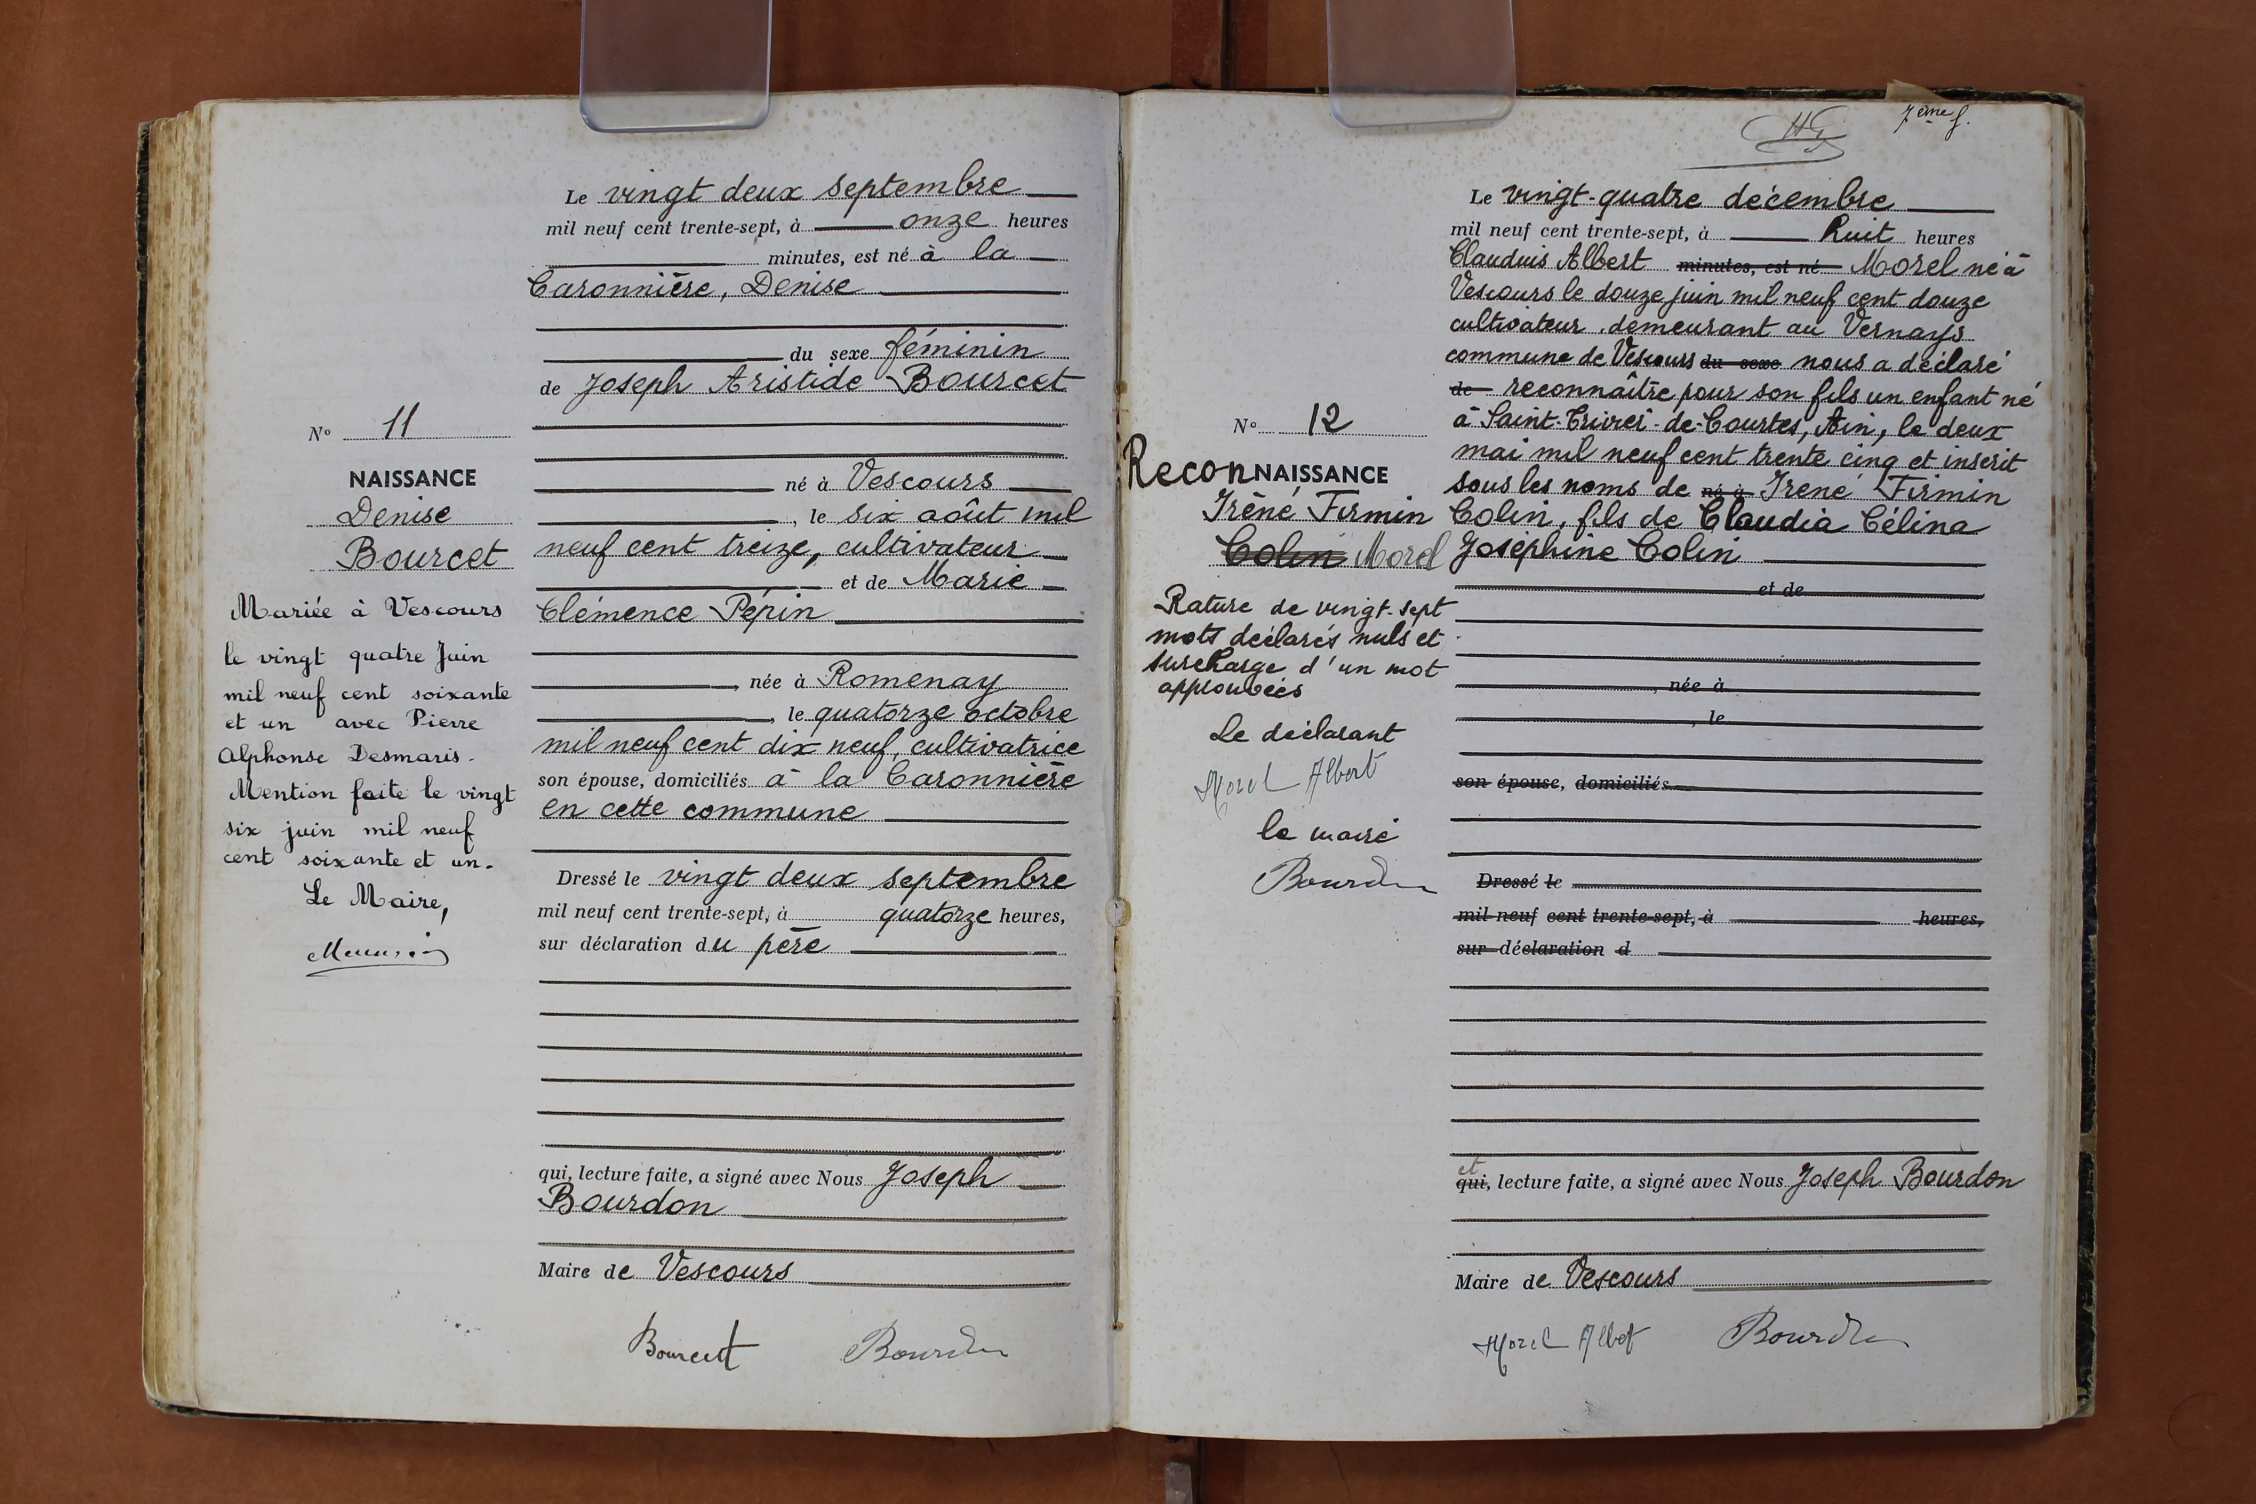 Le vingt deux septembre
mil neuf cent trente-sept, à onze heures
minutes, est né à la
Caronnière, Denise
du sexe féminin
de Joseph Aristide Bourcet
N° 11
NAISSANCE
Denise
Bourcet
né à Vescours
, le six août mil
neuf cent treize, cultivateur
et de Marie
Clémence Pépin
, née à Romenay
, le quatorze octobre
mil neuf cent dix neuf, cultivatrice
son épouse, domiciliés à la Caronnière
en cette commune
Mariée à Vescours
le vingt quatre Juin
mil neuf cent soixante
et un avec Pierre
Alphonse Desmaris.
Mention faite le vingt
six juin mil neuf
cent soixante et un.
Le Maire,
Dressé le vingt deux septembre
mil neuf cent trente-sept, à quatorze heures,
sur déclaration du père
qui, lecture faite, a signé avec Nous Joseph
Bourdon
Maire de Vescours
Bourcet Bourdon
7ème f.
Le vingt-quatre décembre
mil neuf cent trente-sept, à huit heures
Claudius Albert minutes, est né Morel né à
Vescours le douze juin mil neuf cent douze
cultivateur demeurant au Vernays
commune de Vescours du sexe nous a déclaré
de reconnaître pour son fils un enfant né
à Saint-Trivier-de-Courtes, Ain, le deux
mai mil neuf cent trente cinq et inscrit
sous les noms de né à Iréné Firmin
Colin, fils de Claudia Célina
Joséphine Colin
et de
, née à
, le
son épouse, domiciliés
Dressé le
mil neuf cent trente-sept, à heures,
sur déclaration d
N° 12
ReconNAISSANCE
Iréné Firmin
Colin Morel
Rature de vingt-sept
mots déclarés nuls et
surcharge d'un mot
approuvées
Le déclarant
Morel Albert
le maire
Bourdon
et
qui, lecture faite, a signé avec Nous Joseph Bourdon
Maire de Vescours
Morel Albert Bourdon